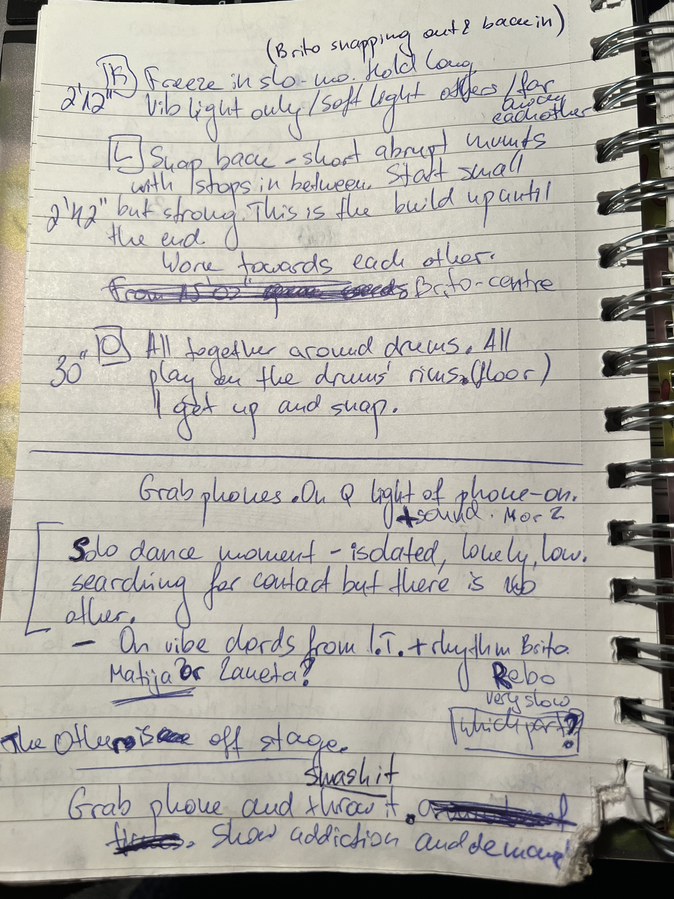 (Brito snapping out & back in)
K Freeze in slo-mo. Hold long
2'12" Vib light only / soft light others / far away
each other
L Snap back - short abrupt mvmts
with stops in between. Start small
2'42" but strong. This is the build up until
the end.
Work towards each other.
Brito-centre
30" O All together around drums. All
play on the drums' rims. (floor)
get up and snap.
Grab phones. On Q light of phone-on.
+ sound. Mor 2
Solo dance moment - isolated, lonely, low.
searching for contact but there is no
other.
- On vibe chords from I.T. + rhythm Brito
Matija or Zaneta? Rebo
very slow
which part?
The Other is off stage.
smash it
Grab phone and throw it.
Show addiction and demand